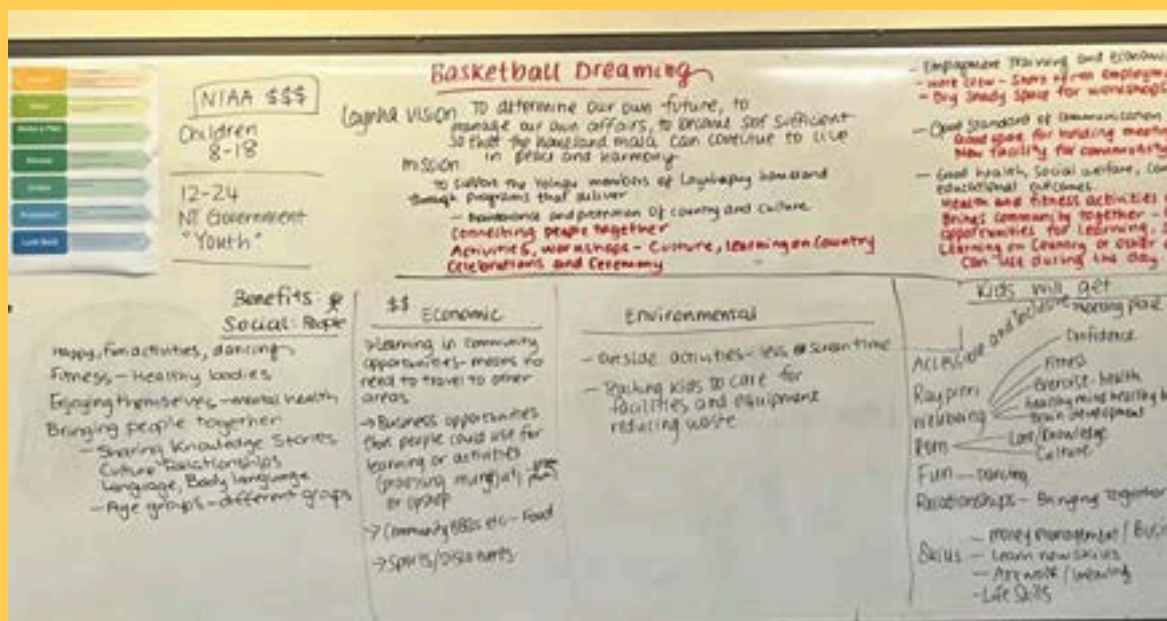 NIAA $$$
Children
8-18
12-24
NT Government
"Youth"
Basketball Dreaming
Laynha Vision To determine our own future, to
manage our own affairs, to become self sufficient
so that the homeland mala can continue to live
in peace and harmony
mission
to support the Yolngu members of Laynhapuy homeland
through programs that deliver
- maintenance and protection of country and culture
Connecting people together
Activities, workshops - Culture, learning on Country
Celebrations and Ceremony
- Employment Training and economic
- work crew - Short term employm
- Big Shady space for workshops
- Good Standard of communication
Good space for holding meetin
New facility for community
- Good health, social welfare, com
educational outcomes
Health and fitness activities
Brings community together -
opportunities for learning, S
Learning on Country or other
Can use during the day.
Benefits:
Social: People
Happy, fun activities, dancing
Fitness - Healthy bodies
Enjoying themselves - mental health
Bringing people together
- Sharing Knowledge Stories
Culture Relationships
Language, Body language
- Age groups - different groups
$$ Economic
→ Learning in community
opportunities - means no
need to travel to other
areas
→ Business opportunities
that people could use for
learning or activities
or
→ Community BBQs etc - Food
→ Sports/
Environmental
- Outside activities - less screen time
- Teaching kids to care for
facilities and equipment
reducing waste
Kids will get
Accessible and Inclusive meeting place
Confidence
Raypirri
Fitness
Exercise - health
wellbeing
healthy mind healthy b
Brain development
Rom
Law/Knowledge
Culture
Fun - Dancing
Relationships - Bringing Together
Skills
- money management / Busi
- Learn new skills
- Artwork / weaving
- Life Skills